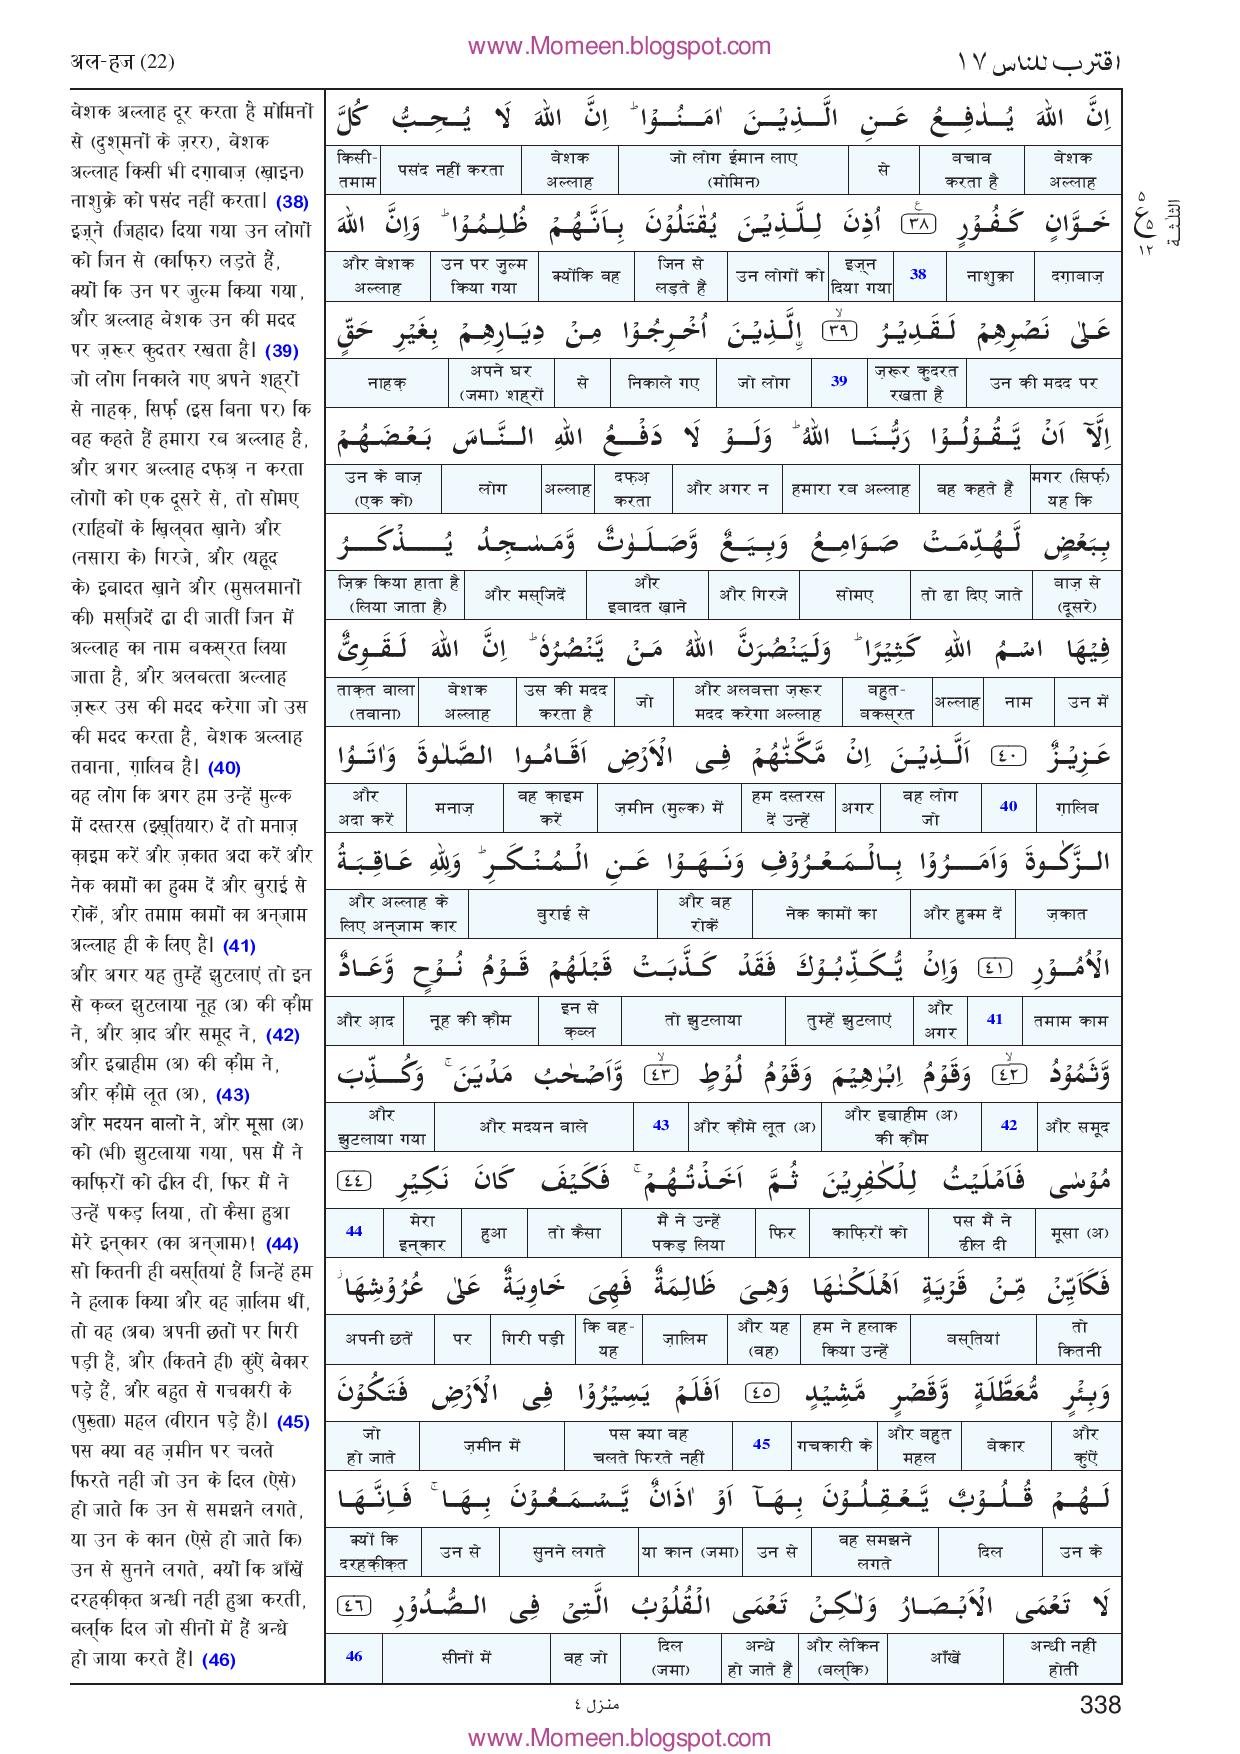 www.Momeen.blogspot.com
अल-हज (22)
اقترب للناس ١٧
बेशक अल्लाह दूर करता है मोमिनों
से (दुश्मनों के ज़रर), बेशक
अल्लाह किसी भी दग़ाबाज़ (ख़ाइन)
नाशुक्रे को पसंद नहीं करता। (38)
इज़्ने (जिहाद) दिया गया उन लोगों
को जिन से (काफ़िर) लड़ते हैं,
क्यों कि उन पर ज़ुल्म किया गया,
और अल्लाह बेशक उन की मदद
पर ज़रूर कुदरत रखता है। (39)
जो लोग निकाले गए अपने शह्रों
से नाहक़, सिर्फ़ (इस बिना पर) कि
वह कहते हैं हमारा रब अल्लाह है,
और अगर अल्लाह दफ़अ़ न करता
लोगों को एक दूसरे से, तो सोमए
(राहिबों के ख़िल्वत ख़ाने) और
(नसारा के) गिरजे, और (यहूद
के) इबादत ख़ाने और (मुसलमानों
की) मस्जिदें ढा दी जातीं जिन में
अल्लाह का नाम बकस्रत लिया
जाता है, और अलबत्ता अल्लाह
ज़रूर उस की मदद करेगा जो उस
की मदद करता है, बेशक अल्लाह
तवाना, ग़ालिब है। (40)
वह लोग कि अगर हम उन्हें मुल्क
में दस्तरस (इख़्तियार) दें तो मनाज़
क़ाइम करें और ज़कात अदा करें और
नेक कामों का हुक्म दें और बुराई से
रोकें, और तमाम कामों का अन्जाम
अल्लाह ही के लिए है। (41)
और अगर यह तुम्हें झुटलाएं तो इन
से क़ब्ल झुटलाया नूह (अ) की क़ौम
ने, और आ़द और समूद ने, (42)
और इब्राहीम (अ) की क़ौम ने,
और क़ौमे लूत (अ), (43)
और मदयन वालों ने, और मूसा (अ)
को (भी) झुटलाया गया, पस मैं ने
काफ़िरों को ढील दी, फिर मैं ने
उन्हें पकड़ लिया, तो कैसा हुआ
मेरे इन्कार (का अन्जाम)! (44)
सो कितनी ही बस्तियां हैं जिन्हें हम
ने हलाक किया और वह ज़ालिम थीं,
तो वह (अब) अपनी छतों पर गिरी
पड़ी हैं, और (कितने ही) कुंऐं बेकार
पड़े हैं, और बहुत से गचकारी के
(पुख़्ता) महल (वीरान पड़े हैं)। (45)
पस क्या वह ज़मीन पर चलते
फिरते नहीं जो उन के दिल (ऐसे)
हो जाते कि उन से समझने लगते,
या उन के कान (ऐसे हो जाते कि)
उन से सुनने लगते, क्यों कि आँखें
दरहक़ीक़त अन्धी नहीं हुआ करतीं,
बल्कि दिल जो सीनों में हैं अन्धे
हो जाया करते हैं। (46)
اِنَّ اللّٰهَ يُدٰفِعُ عَنِ الَّذِيْنَ اٰمَنُوْا ؕ اِنَّ اللّٰهَ لَا يُحِبُّ كُلَّ
बेशक अल्लाह | बचाव करता है | से | जो लोग ईमान लाए (मोमिन) | बेशक अल्लाह | पसंद नहीं करता | किसी-तमाम
خَوَّانٍ كَفُوْرٍ ٣٨ اُذِنَ لِلَّذِيْنَ يُقٰتَلُوْنَ بِاَنَّهُمْ ظُلِمُوْا ؕ وَاِنَّ اللّٰهَ
दग़ाबाज़ | नाशुक्रा | 38 | इज़्न दिया गया | उन लोगों को | जिन से लड़ते हैं | क्योंकि वह | उन पर ज़ुल्म किया गया | और बेशक अल्लाह
ع ٥ ٥ ١٢
الثلثة
عَلٰى نَصْرِهِمْ لَقَدِيْرُ ٣٩ اِلَّذِيْنَ اُخْرِجُوْا مِنْ دِيَارِهِمْ بِغَيْرِ حَقٍّ
उन की मदद पर | ज़रूर कुदरत रखता है | 39 | जो लोग | निकाले गए | से | अपने घर (जमा) शह्रों | नाहक़
اِلَّاۤ اَنْ يَّقُوْلُوْا رَبُّنَا اللّٰهُ ؕ وَلَوْ لَا دَفْعُ اللّٰهِ النَّاسَ بَعْضَهُمْ
मगर (सिर्फ़) यह कि | वह कहते हैं | हमारा रब अल्लाह | और अगर न | दफ़अ़ करता | अल्लाह | लोग | उन के बाज़ (एक को)
بِبَعْضٍ لَّهُدِّمَتْ صَوَامِعُ وَبِيَعٌ وَّصَلَوٰتٌ وَّمَسٰجِدُ يُذْكَرُ
बाज़ से (दूसरे) | तो ढा दिए जाते | सोमए | और गिरजे | और इबादत ख़ाने | और मस्जिदें | ज़िक्र किया हाता है (लिया जाता है)
فِيْهَا اسْمُ اللّٰهِ كَثِيْرًا ؕ وَلَيَنْصُرَنَّ اللّٰهُ مَنْ يَّنْصُرُهٗ ؕ اِنَّ اللّٰهَ لَقَوِىٌّ
उन में | नाम | अल्लाह | बहुत-बकस्रत | और अलबत्ता ज़रूर मदद करेगा अल्लाह | जो | उस की मदद करता है | बेशक अल्लाह | ताक़त वाला (तवाना)
عَزِيْزٌ ٤٠ اَلَّذِيْنَ اِنْ مَّكَّنّٰهُمْ فِى الْاَرْضِ اَقَامُوا الصَّلٰوةَ وَاٰتَوُا
ग़ालिब | 40 | वह लोग जो | अगर | हम दस्तरस दें उन्हें | ज़मीन (मुल्क) में | वह क़ाइम करें | मनाज़ | और अदा करें
الزَّكٰوةَ وَاَمَرُوْا بِالْمَعْرُوْفِ وَنَهَوْا عَنِ الْمُنْكَرِ ؕ وَلِلّٰهِ عَاقِبَةُ
ज़कात | और हुक्म दें | नेक कामों का | और वह रोकें | बुराई से | और अल्लाह के लिए अन्जाम कार
الْاُمُوْرِ ٤١ وَاِنْ يُّكَذِّبُوْكَ فَقَدْ كَذَّبَتْ قَبْلَهُمْ قَوْمُ نُوْحٍ وَّعَادٌ
तमाम काम | 41 | और अगर | तुम्हें झुटलाएं | तो झुटलाया | इन से क़ब्ल | नूह की क़ौम | और आ़द
وَّثَمُوْدُ ٤٢ وَقَوْمُ اِبْرٰهِيْمَ وَقَوْمُ لُوْطٍ ٤٣ وَّاَصْحٰبُ مَدْيَنَ ۚ وَكُذِّبَ
और समूद | 42 | और इब्राहीम (अ) की क़ौम | और क़ौमे लूत (अ) | 43 | और मदयन वाले | और झुटलाया गया
مُوْسٰى فَاَمْلَيْتُ لِلْكٰفِرِيْنَ ثُمَّ اَخَذْتُهُمْ ۚ فَكَيْفَ كَانَ نَكِيْرِ ٤٤
मूसा (अ) | पस मैं ने ढील दी | काफ़िरों को | फिर | मैं ने उन्हें पकड़ लिया | तो कैसा | हुआ | मेरा इन्कार | 44
فَكَاَيِّنْ مِّنْ قَرْيَةٍ اَهْلَكْنٰهَا وَهِىَ ظَالِمَةٌ فَهِىَ خَاوِيَةٌ عَلٰى عُرُوْشِهَا ز
तो कितनी | बस्तियां | हम ने हलाक किया उन्हें | और यह (वह) | ज़ालिम | कि वह-यह | गिरी पड़ी | पर | अपनी छतें
وَبِئْرٍ مُّعَطَّلَةٍ وَّقَصْرٍ مَّشِيْدٍ ٤٥ اَفَلَمْ يَسِيْرُوْا فِى الْاَرْضِ فَتَكُوْنَ
और कुंऐं | बेकार | और बहुत महल | गचकारी के | 45 | पस क्या वह चलते फिरते नहीं | ज़मीन में | जो हो जाते
لَهُمْ قُلُوْبٌ يَّعْقِلُوْنَ بِهَاۤ اَوْ اٰذَانٌ يَّسْمَعُوْنَ بِهَا ۚ فَاِنَّهَا
उन के | दिल | वह समझने लगते | उन से | या कान (जमा) | सुनने लगते | उन से | क्यों कि दरहक़ीक़त
لَا تَعْمَى الْاَبْصَارُ وَلٰكِنْ تَعْمَى الْقُلُوْبُ الَّتِىْ فِى الصُّدُوْرِ ٤٦
अन्धी नहीं होतीं | आँखें | और लेकिन (बल्कि) | अन्धे हो जाते हैं | दिल (जमा) | वह जो | सीनों में | 46
منزل ٤
338
www.Momeen.blogspot.com